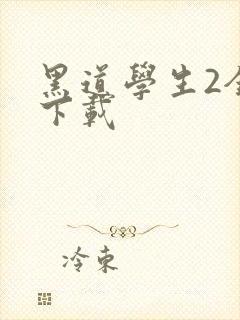 黑道學生2全
下載
冷東